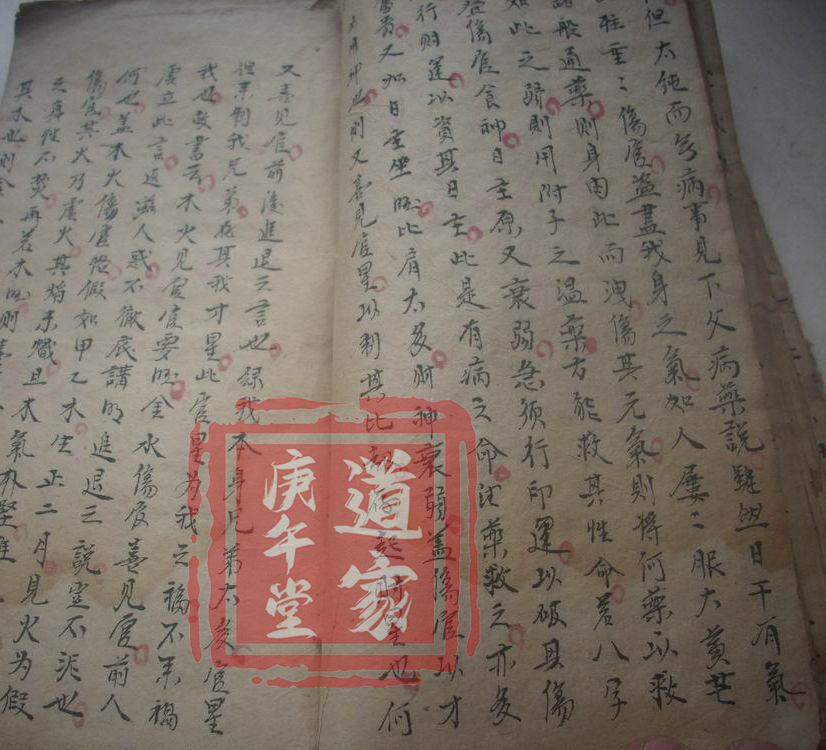 但太純而無病事見下久病藥說雖與日干有氣
旺重〻傷官盜盡我身之氣如人屢〻服大黃芒
諸般通藥則身因此而洩傷其元氣則將何藥以救
如此之弱則用附子之温藥方能救其性命若八字
傷官食神日主原又衰弱急須行印運以破其傷
行財運以資其日主此是有病之命得藥救之亦多
富貴又如日主坐旺比肩太多財神衰弱盖傷官以才
則又喜見官星以制其比劫存起財星也何
又喜見官前後進退之言也緣我本身兄弟太多官星
但来制我兄弟存其我才星此官星为我之福不来禍
我也故書云木火見官官要旺金水傷官喜見官前人
虛立此言返滋人惑不徹底講明進退之說豈不泥也
何也盖木火傷官格假如甲乙木生正二月見火为假
傷官其火乃虛火其焰未熾且木氣木堅难
之再往不焚再若木旺則喜
其木也則金
道家
庚午堂